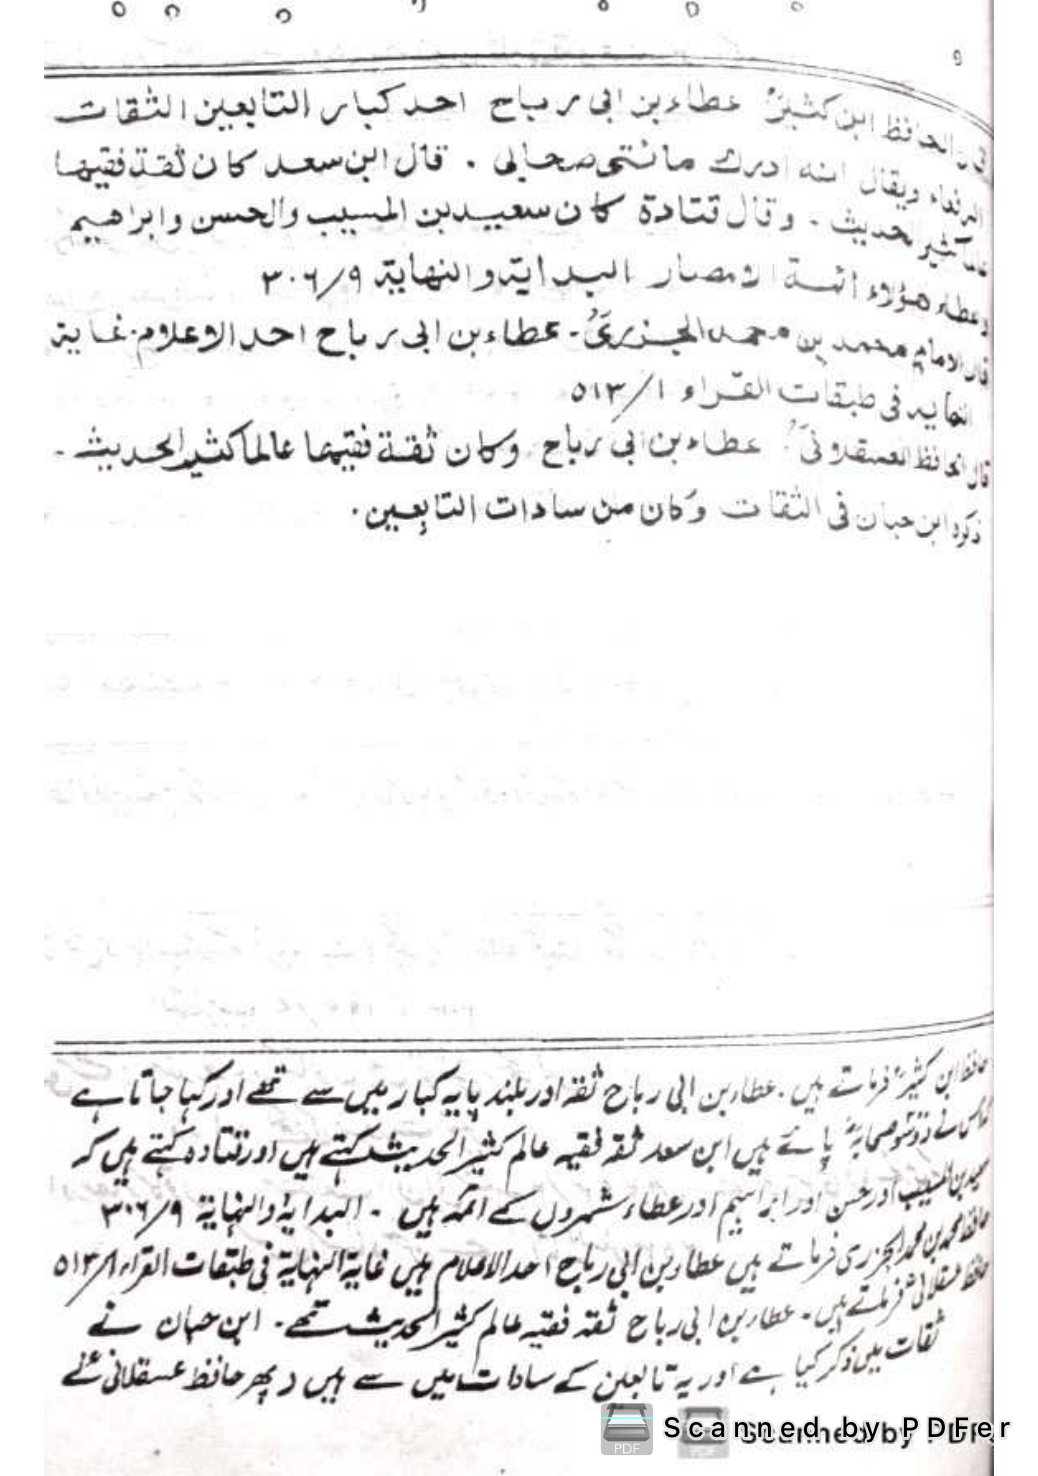 ٩
قال الحافظ ابن کثیرؒ عطاء بن ابی رباح احد کبار التابعین الثقات
الرفعاء ویقال انہ ادرک مائتی صحابی ۔ قال ابن سعد کان ثقۃ فقیہا
عالما کثیر الحدیث ۔ وقال قتادۃ کان سعید بن المسیب والحسن وابراھیم
وعطاء ھؤلاء ائمۃ الامصار البدایۃ والنھایۃ ٣٠٦/٩
قال الامام محمد بن محمد الجزریؒ ۔ عطاء بن ابی رباح احد الاعلام ۔ غایۃ
النہایہ فی طبقات القراء ٥١٣/١
قال الحافظ العسقلانیؒ عطاء بن ابی رباح وکان ثقۃ فقیھا عالما کثیر الحدیث ۔
ذکرہ ابن حبان فی الثقات وکان من سادات التابعین ۔
حافظ ابن کثیرؒ فرماتے ہیں ۔ عطاء بن ابی رباح ثقہ اور بلند پایہ کبار میں سے تھے اور کہا جاتا ہے
نے دو سو صحابہؓ پائے ہیں ابن سعد ثقہ فقیہ عالم کثیر الحدیث کہتے ہیں اور قتادہ کہتے ہیں کہ
سعید بن المسیب اور حسن اور ابراہیم اور عطاء شہروں کے ائمہ ہیں ۔ البدایۃ والنہایۃ ٣٠٦/٩
حافظ محمد بن محمد الجزری فرماتے ہیں عطاء بن ابی رباح احد الاعلام ہیں غایۃ النہایۃ فی طبقات القراء ٥١٣/١
حافظ عسقلانیؒ فرماتے ہیں ۔ عطاء بن ابی رباح ثقہ فقیہ عالم کثیر الحدیث تھے ۔ ابن حبان نے
ثقات میں ذکر کیا ہے اور یہ تابعین کے سادات میں سے ہیں پھر حافظ عسقلانی نے
Scanned by PDFer
Scanned by PDF